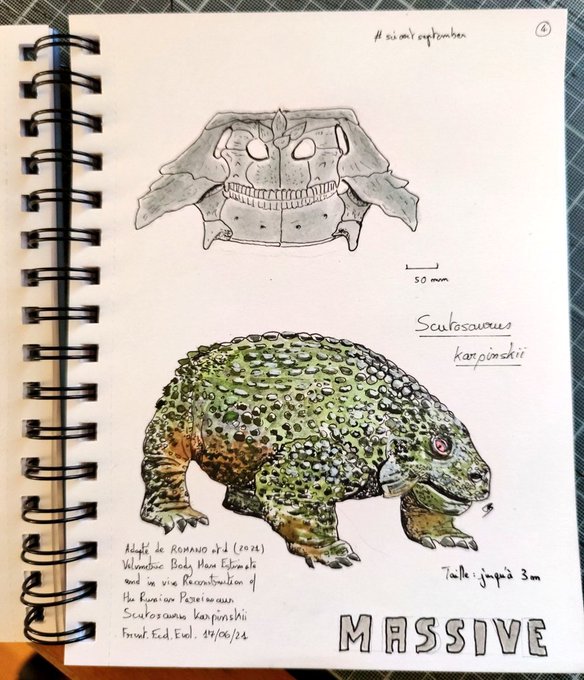 4
#sciartseptember
50 mm
Scutosaurus
karpinskii
Adapté de ROMANO et al (2021)
Volumetric Body Mass Estimate
and in vivo Reconstruction of
the Russian Pareiasaur
Scutosaurus karpinskii
Front. Ecol. Evol. 17/06/21
Taille: jusqu'à 3m
MASSIVE